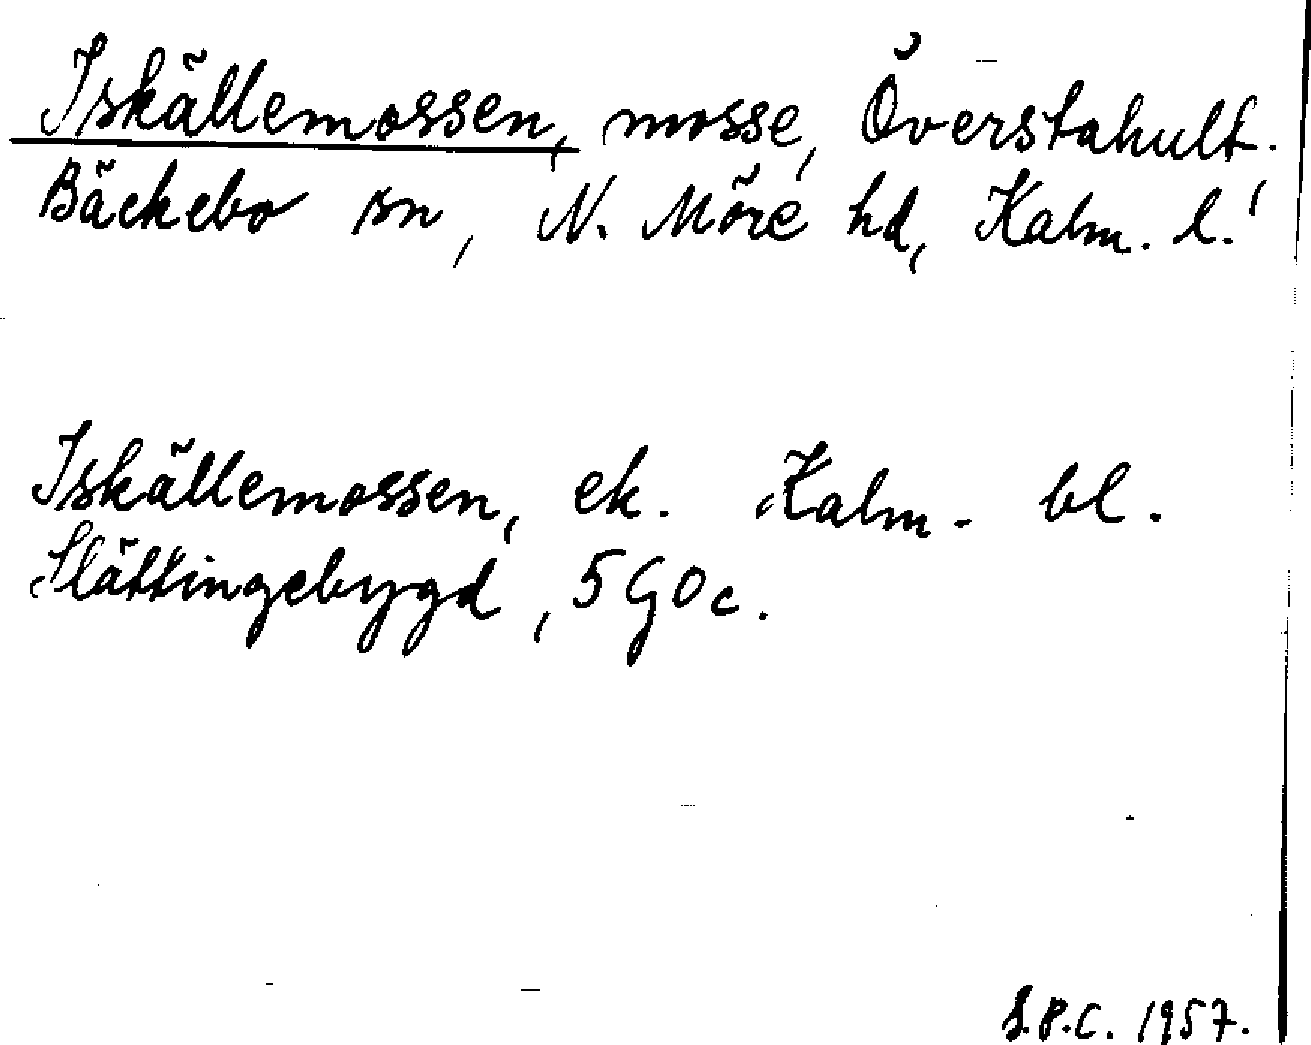 Iskällemossen, mosse, Överstahult.
Bäckebo sn, N. Möre hd, Kalm. l.
Iskällemossen, ek. Kalm. bl.
Slättingebygd, 5 G 0 c.
S.P.C. 1957.